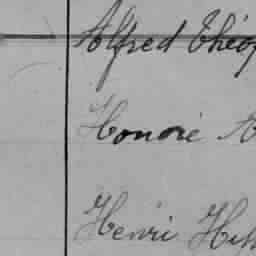 Alfred Théop
Honoré A
Henri Hip